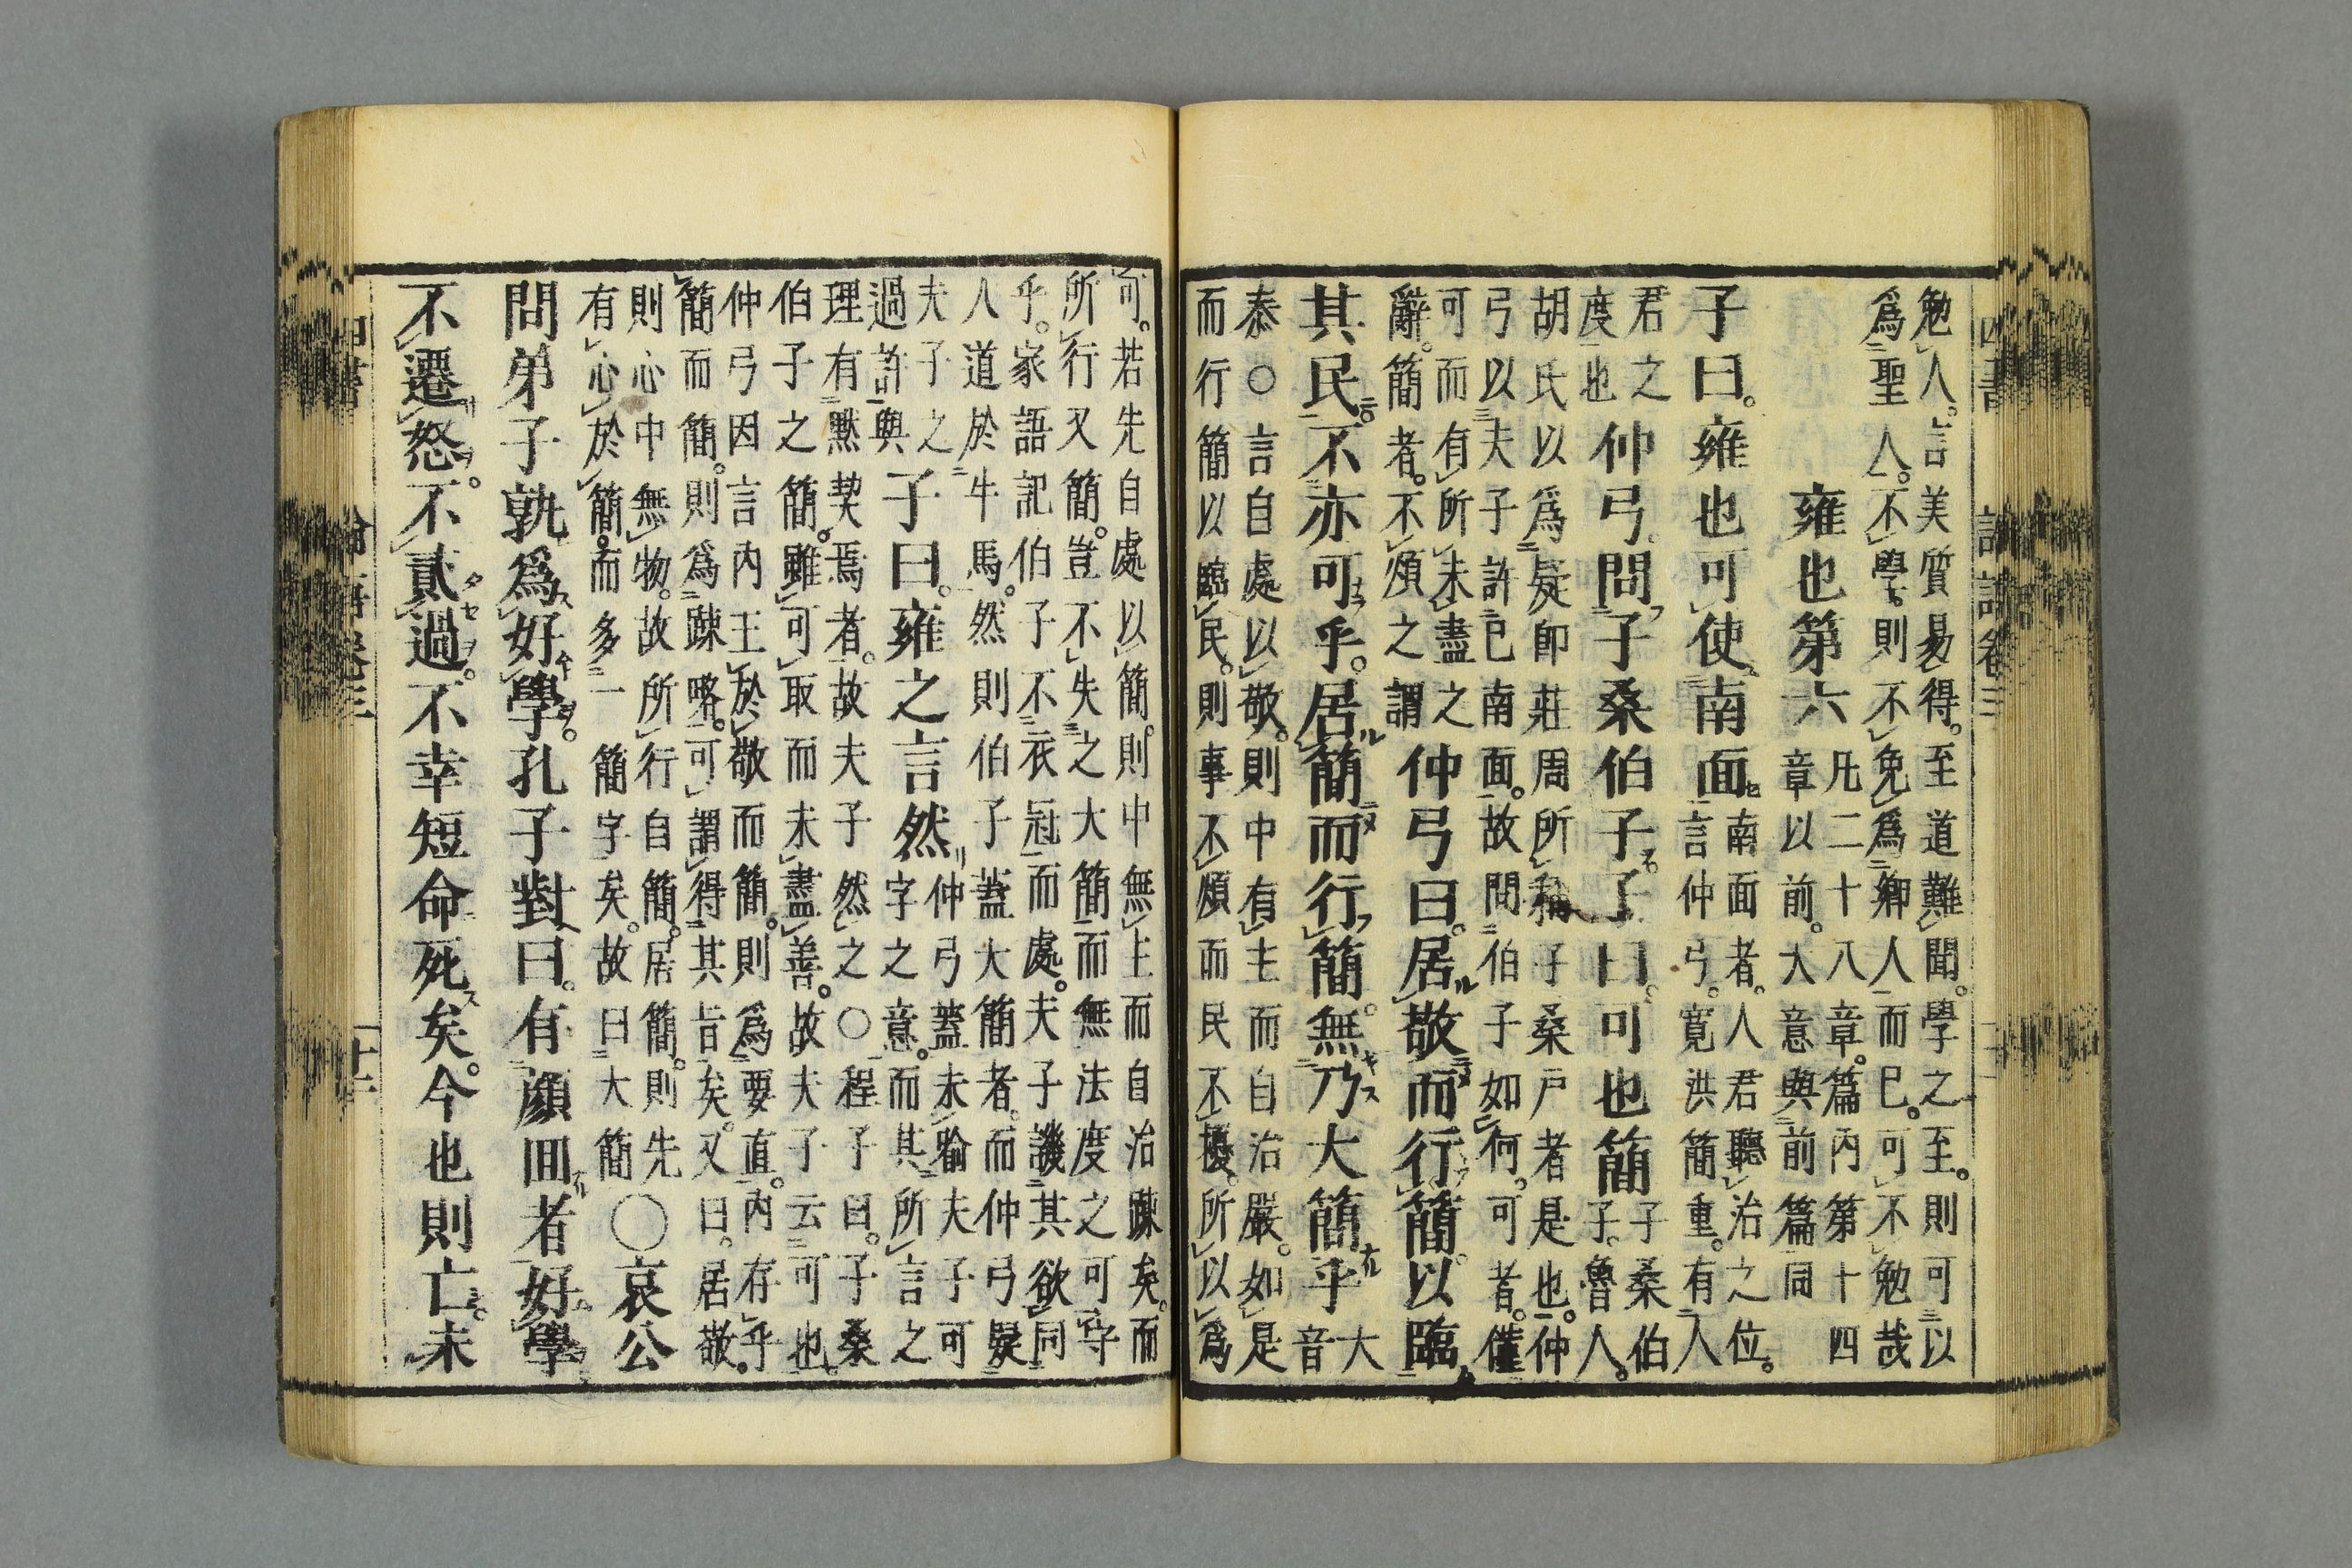 勉人。言美質易得。至道難聞。學之至。則可以
爲聖人。不學。則不免爲鄕人而已。可不勉哉
雍也第六
凡二十八章。篇內第十四
章以前。大意與前篇同
子曰。雍也可使南面
南面者。人君聽治之位。
言仲弓。寬洪簡重。有人
君之
度也
仲弓。問子桑伯子。子曰。可也簡
子桑伯
子。魯人。
胡氏以爲疑卽莊周所稱子桑戶者是也。仲
弓以夫子許已南面。故問伯子如何。可者。僅
可而有所未盡之
辭。簡者。不煩之謂
仲弓曰。居敬而行簡。以臨
其民。不亦可乎。居簡而行簡。無乃大簡乎
大
音
泰○言自處以敬。則中有主而自治嚴。如是
而行簡以臨民。則事不煩而民不擾。所以爲
可。若先自處以簡。則中無主而自治踈矣。而
所行又簡。豈不失之大簡而無法度之可守
乎。家語記伯子不衣冠而處。夫子譏其欲同
人道於牛馬。然則伯子蓋大簡者。而仲弓疑
夫子之
過許與
子曰。雍之言然
仲弓蓋未喻夫子可
字之意。而其所言之
理有默契焉者。故夫子然之○程子曰。子桑
伯子之簡。雖可取而未盡善。故夫子云可也。
仲弓因言內主於敬而簡。則爲要直。內存乎
簡而簡。則爲踈略。可謂得其旨矣。又曰。居敬。
則心中無物。故所行自簡。居簡。則先
有心於簡。而多一簡字矣。故曰大簡
○哀公
問弟子孰爲好學。孔子對曰。有顏回者好學
不遷怒。不貳過。不幸短命死矣。今也則亡。未